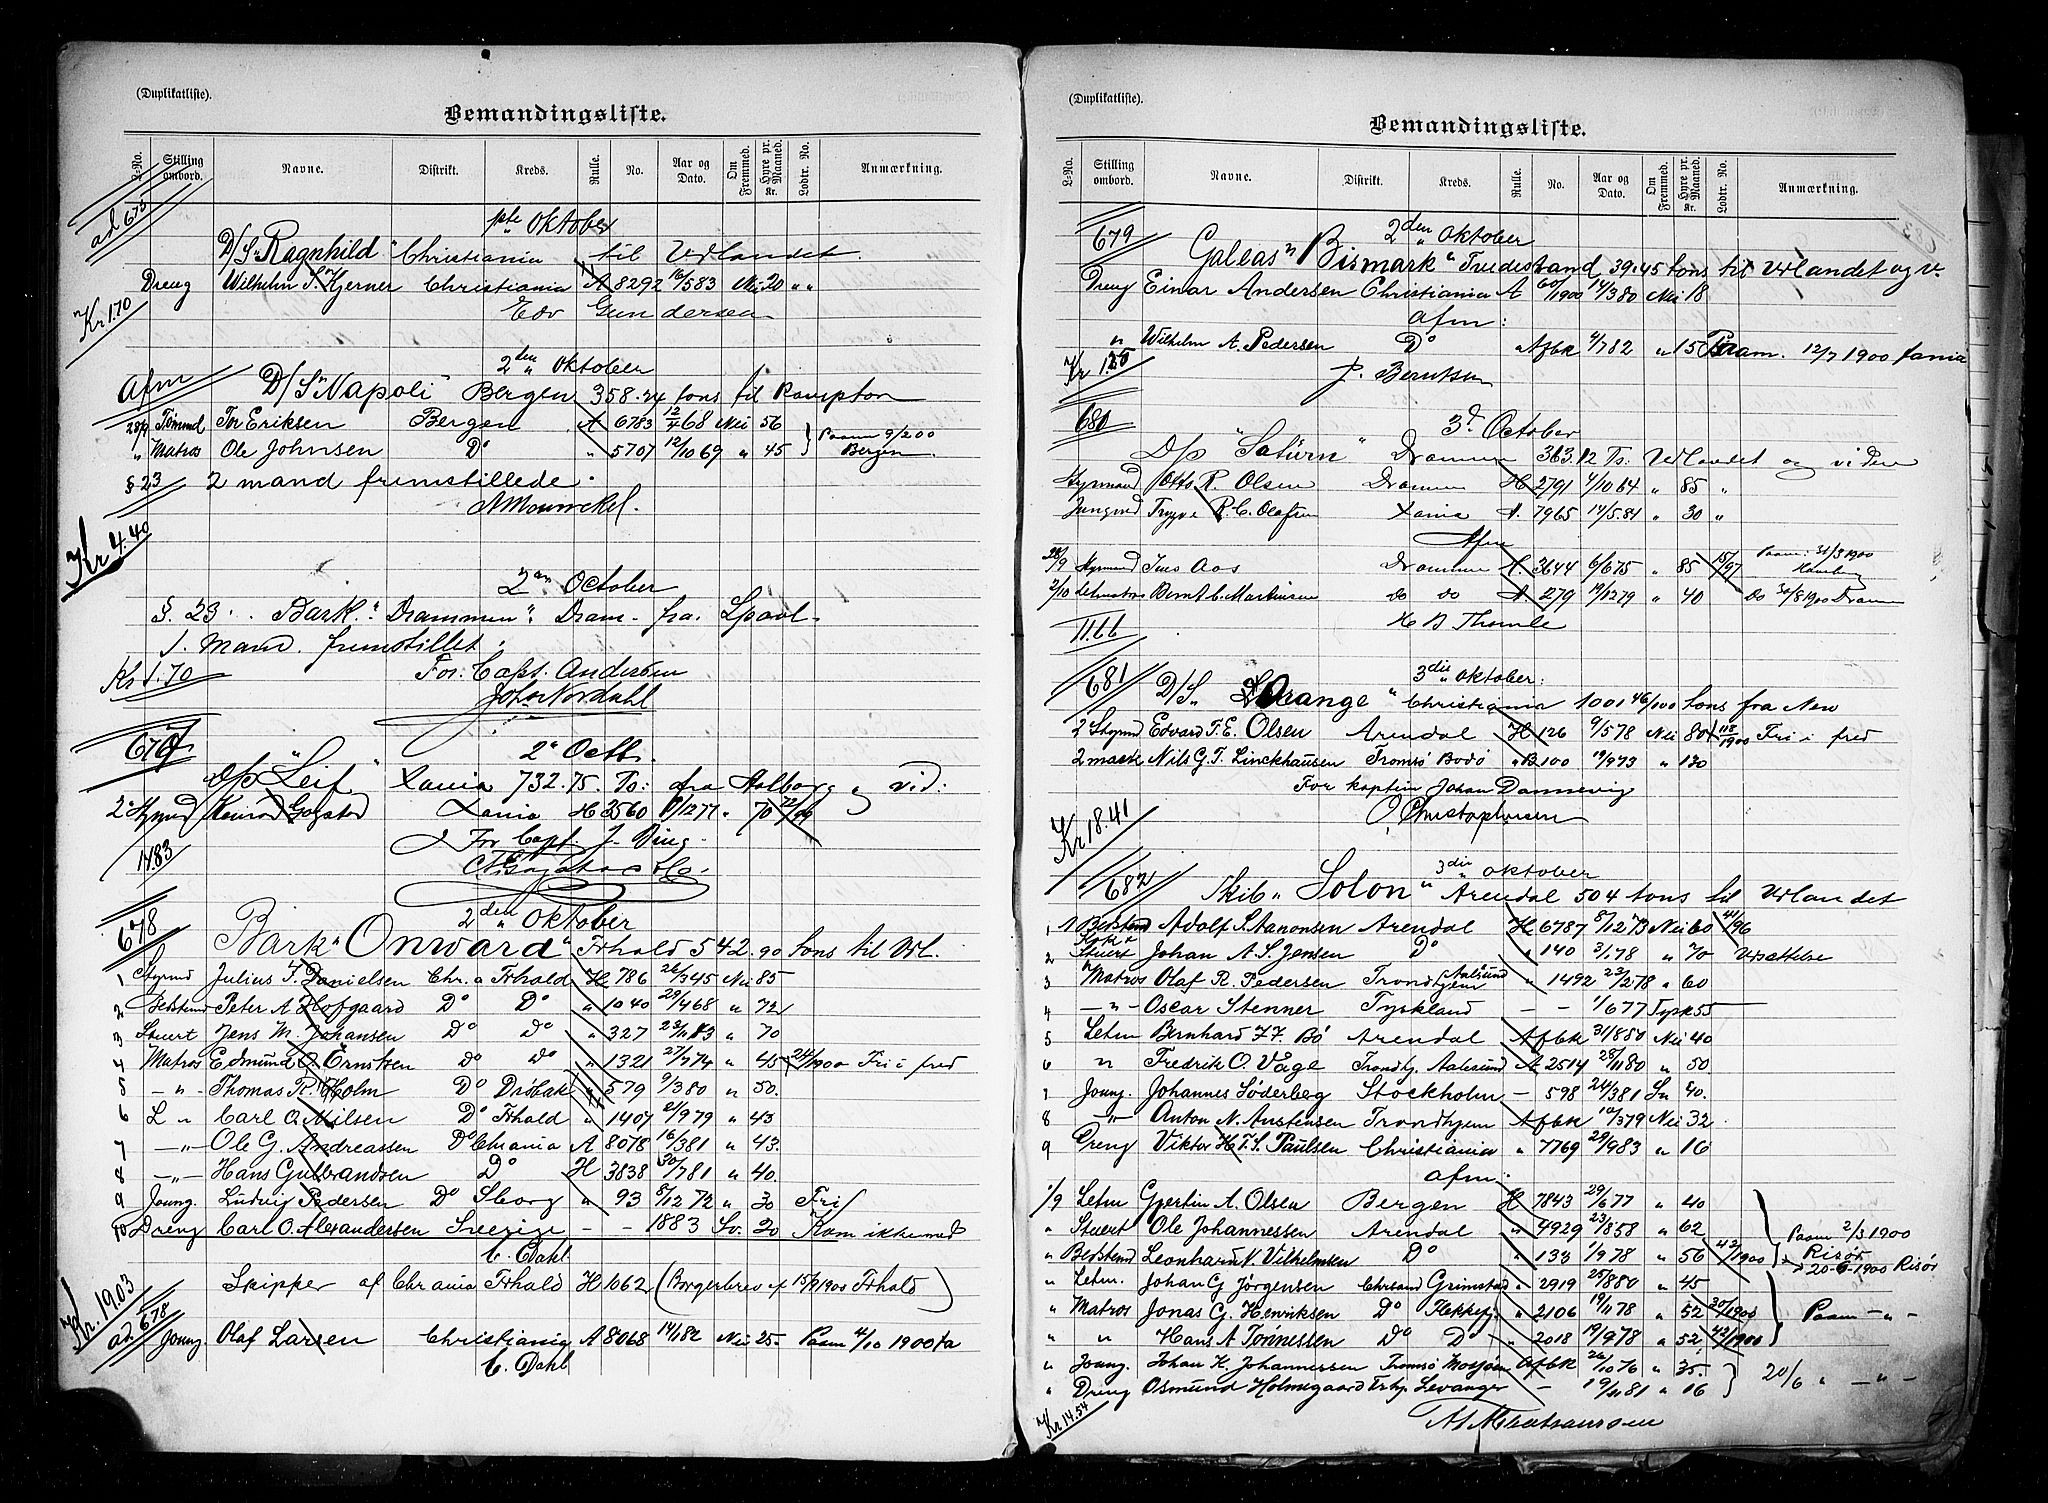 (Duplikatliste).
Bemandingsliste.
L-No. Stilling ombord. Navne. Distrikt. Kreds. Rulle. No. Aar og Dato. Om Fremmed. Hyre pr. Maaned. Kr. Lodtr. No. Anmærkning.
ad 675
1ste Oktober
D/S "Ragnhild" Christiania til Udlandet.
Dreng Wilhelm S. Hjerner Christiania A 8292 16/5 83 Nei 20 " "
Kr 1.70
Edv Gundersen
2den Oktober
Afm D/S "Napoli" Bergen 358.24 tons til
28/9 Tømmd Tor Eriksen Bergen A 6783 12/4 68 Nei 56
" Matros Ole Johnsen Do " 5707 12/10 69 " 45 Paam 9/2 00 Bergen
§ 23 2 mand fremstillede.
Kr 4.40
2den October
§. 23. Bark. "Drammen" Dram. fra
1. Mand. fremstillet.
Kr 1.70 For. Capt. Andersen
Joh. Nordahl
2de Octb.
D/S "Leif" Xania 732.75. To: fra Aalborg og vid:
2 Styrmd Konrad Gogstad Xania H 3560 12 77 " 70 72/99
For Capt. J. Ding
1483
678
2den Oktober
Bark "Onward" Frhald 542.90 tons til Udl.
1 Styrmd Julius F. Danielsen Chr.a Frhald H 786 26/3 45 Nei 85
2 Bedstmd Peter A Hofgaard Do Do " 1040 29/4 68 " 72
3 Stuert Jens M. Johansen Do Do " 327 " 70
4 Matros Edmund O. Örnitzen Do Do " 1321 27/7 74 " 45 24/1900 Fri i fred
5 - " - Thomas R. Holm Do Drøbak " 579 9/3 80 " 50.
6 L " Carl O. Nilsen Do Frhald " 1407 21/9 79 " 43
7 - " - Ole G. Andreassen Do Chrania A 8078 16/3 81 " 43.
8 - " - Hans Gulbrandsen Do H 3838 30/7 81 " 40.
9 Joung. Ludvig Pedersen Do Sborg " 93 8/12 72 " 30 Fri
10 Dreng Carl O. Alexandersen Sverige - - 1883 Sv. 20 Kom ikke med
C. Dahl
Kr. 19.03
Skipper af Chrania Frhald H 1062 (Borgerbrev af 15/9 1900 Frhald)
ad. 678 Joung. Olaf Larsen Christiania A 8068 14/1 82 Nei 25- Paam 4/10 1900 fa
C. Dahl
(Duplikatliste).
Bemandingsliste.
L-No. Stilling ombord. Navne. Distrikt. Kreds. Rulle. No. Aar og Dato. Om Fremmed. Hyre pr. Maaned. Kr. Lodtr. No. Anmærkning.
679
2den Oktober
Galeas "Bismark" Tvedestrand 39.45 tons til Udlandet og v.
Dreng Einar Andersen Christiania A 60/1900 14/3 80 Nei 18
Afm:
" Wilhelm A. Pedersen Do Afbk 4/7 82 " 15 Paam. 12/7 1900 fania
Kr 1.25
J. Berntsen
680
3d. October
D/S "Saturn" Drammen 363.12 Ts. Udlandet og videre
Styrmand Otto R. Olsen Drammen H 2791 4/10 64 " 85 "
Jungmd Trygve R. C. Olafsen Xania A. 7965 14/5.81 " 30 "
Afm
28/9 Styrmand Jens Aos Drammen H. 3644 6/6 75 " 85 15/97 Paam: 31/3 1900 Hamburg
2/10 Letmatros Bernt C. Martinsen do do A. 279 19/12 79 " 40 do 30/8 1900 Dramn
H B Thomle
11.66
681
3die Oktober:
D/S. "Orange" Christiania 1001 46/100 tons fra New
2 Styrmd Edvard T. E. Olsen Arendal H 126 9/5 78 Nei 80 118/1900 Fri i fred
2 mask Nils G. T. Linckhausen Tromsø Bodø B 100 19/9 73 " 120
For kaptein Johan Dannevig
O. Christophersen
Kr 18.41
682
3die Oktober
Skib. "Solon" Arendal 504 tons til Udlandet
1 Bedstmd Adolf S. Aanonsen Arendal H 6787 8/12 73 Nei 60 41/96
2 Stuert Johan A. S. Jensen Do " 140 3/1 78 " 70 Udsættelse
3 Matros Olaf R. Pedersen Trondhjem Aalesund " 1492 23/2 78 " 60
4 - " - Oscar Stenner Tyskland - - 1/6 77 Tysk 55
5 Letm Bernhard F. F. Bö Arendal Afbk 31/8 80 Nei 40
6 " Fredrik O. Våge Trondhj. Aalesund A 2514 28/11 80 " 50.
7 Joung. Johannes Söderberg Stockholm - 598 24/3 81 Sv 40.
8 - " - Anton N. Austensen Trondhjem Afbk 10/3 79 Nei 32
9 Dreng Viktor H. F. S. Paulsen Christiania " 7769 29/9 83 " 16
Afm:
1/9 Letm Gjertin A. Olsen Bergen H 7843 29/6 77 " 40
" Stuert Ole Johannessen Arendal " 4929 23/8 58 " 62 Paam 2/3 1900
" Bedstmd Leonhard N. Vilhelmsen Do " 133 1/9 78 " 56 42/1900 Risør 20-6-1900 Risør
" Letm. Johan G Jørgensen Chrsand Grimstad " 2919 25/8 80 " 45
" Matros Jonas G. Henriksen Do Flekkefj. " 2106 19/11 78 " 52 30/1900 Paam - " -
" " Hans A Tönnessen Do Do " 2018 19/9 78 " 52 42/1900
" Joung. Johan K. Johannessen Tromsø Mosjøen Afbk 26/10 76 " 35. 20/6 " - " -
" Dreng Osmund Holmsgaard Trhj. Levanger - 19/11 81 " 16
Kr 14.54